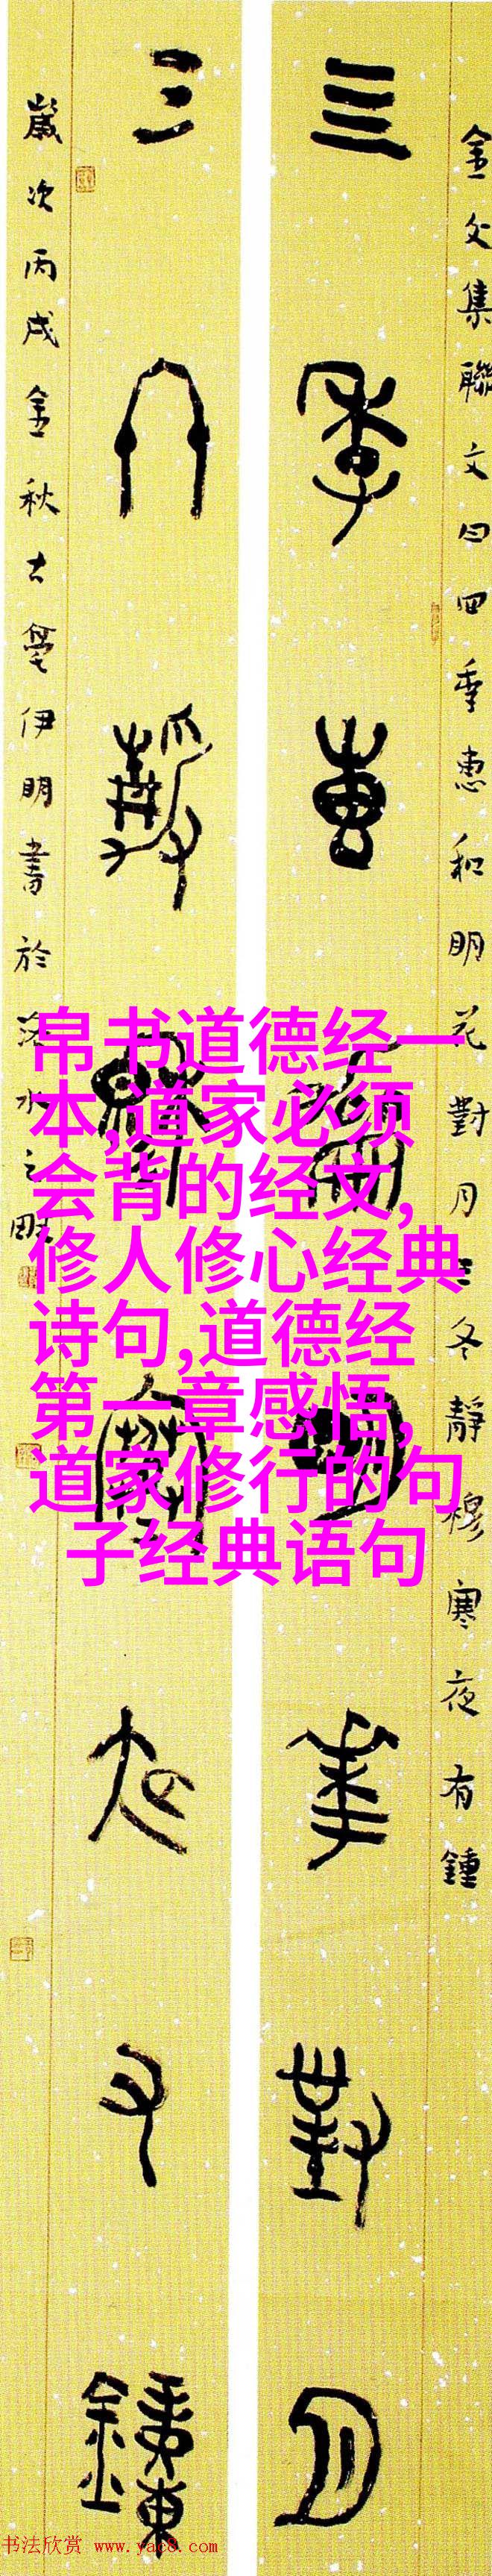 金文集聯文曰四季惠和明花對月三冬靜穆寒夜有鍾
四季惠龢明華對月
三冬靜穆寒夜又鍾
歲次丙戌金秋古亳伊明書於洛水之畔
帛书道德经一
本,道家必须
会背的经文,
修人修心经典
诗句,道德经
第一章感悟,
道家修行的句
子经典语句
书法欣赏 www.yac8.com